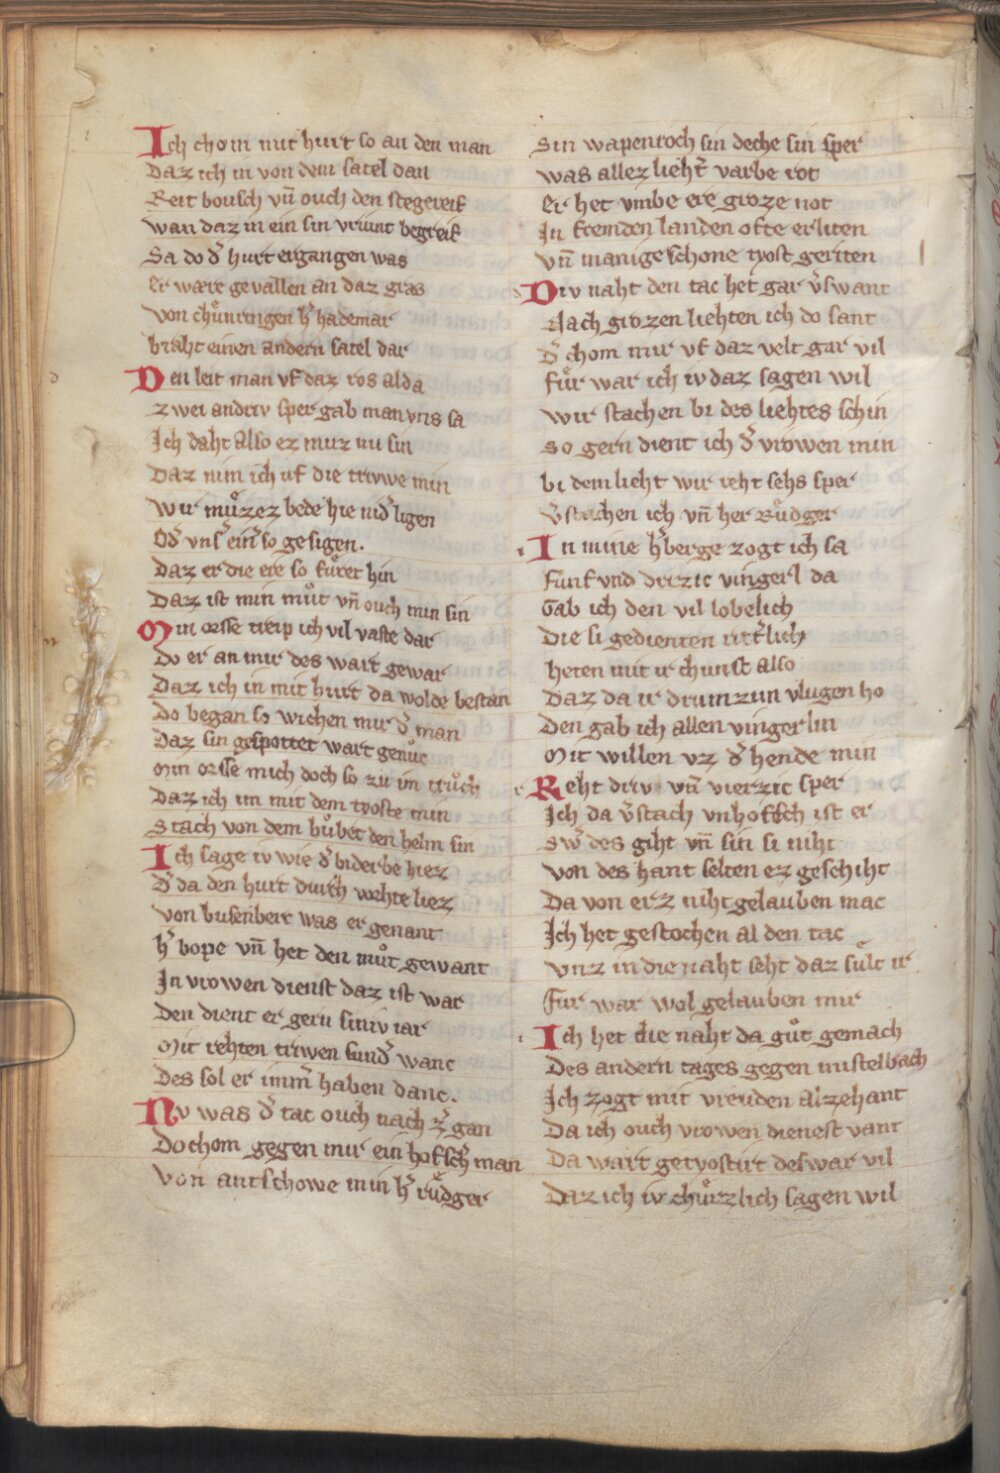 Ich chom mit hurt so an den man
Daz ich in von dem satel dan
Reit bousch vn̄ ouch den stegereif
wan daz in ein sin vriunt begreif
Sa do d̓ hurt ergangen was
Er wære gevallen an daz gras
Von chuͦnringen h̓ hademar
braht einen andern satel dar
Den leit man vf daz ros al da
Zwei andriv sper gab man vns sa
Ich daht also ez muz nu sin
Daz nim ich vf die triwe min
Wir muͤzez bede hie nid̓ ligen
Od̓ vns̓ ein̓ so gesigen.
Daz er die ere so fuͤret hin
Daz ist min muͦt vn̄ ouch min sin
Min orsse treip ich vil vaste dar
Do er an mir des wart gewar
Daz ich in mit hurt da wolde bestan
Do began so wichen mir d̓ man
Daz sin gespottet wart genuͦc
Min orsse mich doch so zu im truͦch
Daz ich im mit dem tyoste min
Stach von dem huͦbet den helm sin
Ich sage iv wie d̓ biderbe hiez
D̓ da den hurt durch vorhte liez
Von busenberc was er genant
h̓ bope vn̄ het den muͦt gewant
In vrowen dienst daz ist war
Den dient er gern siniv iar
Mit rehten triwen sund̓ wanc
Des sol er imm̓ haben danc.
Nv was d̓ tac ouch nach z̓gan
Do chom gegen mir ein hofsch̓ man
Von antschowe min h̓ ruͤdger
Sin wapenroch sin deche sin sper
was allez lieht̓ varbe rot
Er het vmbe ere groze not
In fremden landen ofte erliten
Vn̄ manige schone tyost geriten
Div naht den tac het gar v̓swant
Nach grozen liehten ich do sant
D̓ chom mir vf daz velt gar vil
fuͤr war ich iv daz sagen wil
wir stachen bi des liehtes schin
So gern dient ich d̓ vrowen min
bi dem lieht wir reht sehs sper
v̓stachen ich vn̄ her Ruͤdger
In mine h̓berge zogt ich sa
funf vnd drizic vingerl da
Gab ich den vil lobelich
Die si gedienten rit̓lich
heten mit ir chunst also
Daz da ir drumzun vlugen ho
Den gab ich allen vingerlin
Mit willen vz d̓ hende min
Reht driv vn̄ vierzic sper
Ich da v̓stach vnhofsch ist er
Sw̓ des giht vn̄ sin si niht
Von des hant selten ez geschiht
Da von erz niht gelauben mac
Ich het gestochen al den tac
Vnz in die naht seht daz sult ir
Fur war wol gelauben mir
Ich het die naht da guͦt gemach
Des andern tages gegen mistelbach
Ich zogt mit vreuden alzehant
Da ich ouch vrowen dienest vant
Da wart getyostirt deswar vil
Daz ich iv chuͤrzlich sagen wil